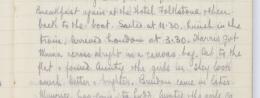 Breakfast again at the Hotel, Folkstone, then
back to the boat. Sailed at 11.30, lunch in the
train, arrived London at 3.30. Harris got
across alright in a canvas bag. Out to the
flat & found Aunty & the girls in. They look
much better & brighter. came in later.